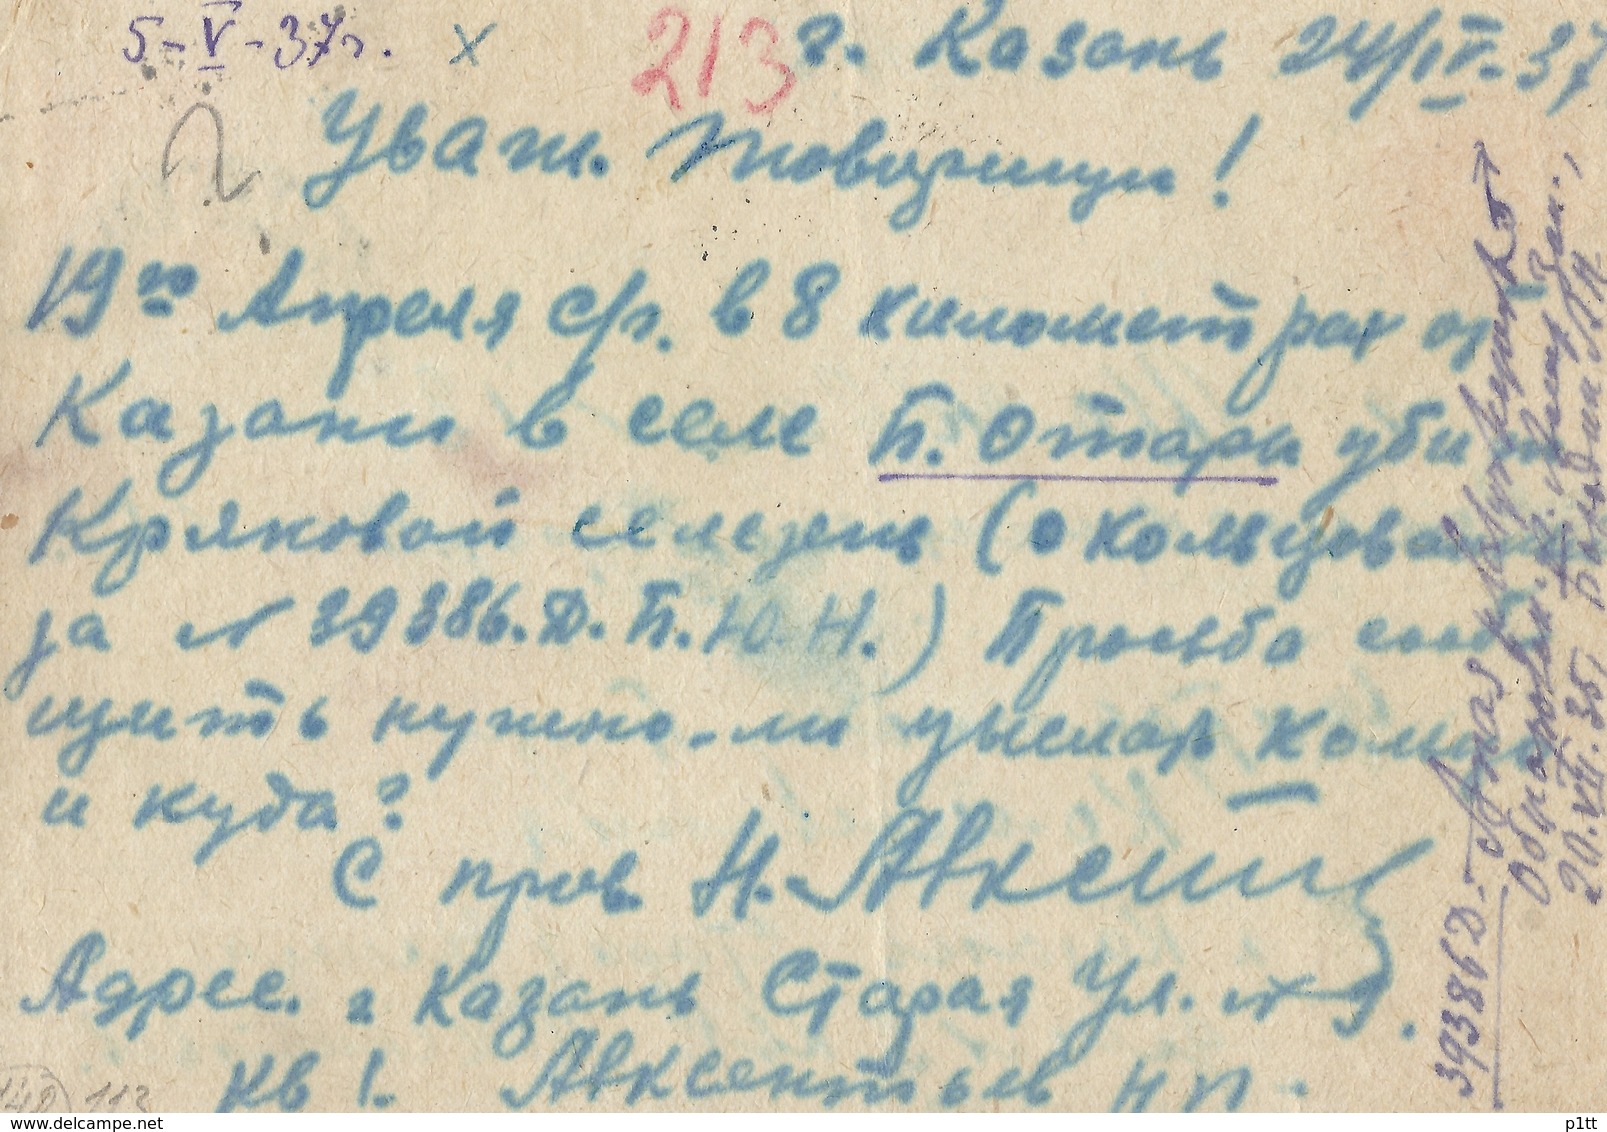 5-V-37г. х 213 г. Казань 24/IV-37
Уваж. Товарищи!
19го Апреля с/г. в 8 километрах от
Казани в селе П. Отары убит
Кряковой селезень (окольцован
за № 39386.Д.П.Ю.Н.) Просьба сооб
щить нужно-ли высылать
и куда?
С прив Н. Авксент
Адрес. г Казань Старая Ул. № 9.
кв 1. Авксентьев Н П.
39386D-
20.VIII.35,
148 113
www.delcampe.net
p1tt